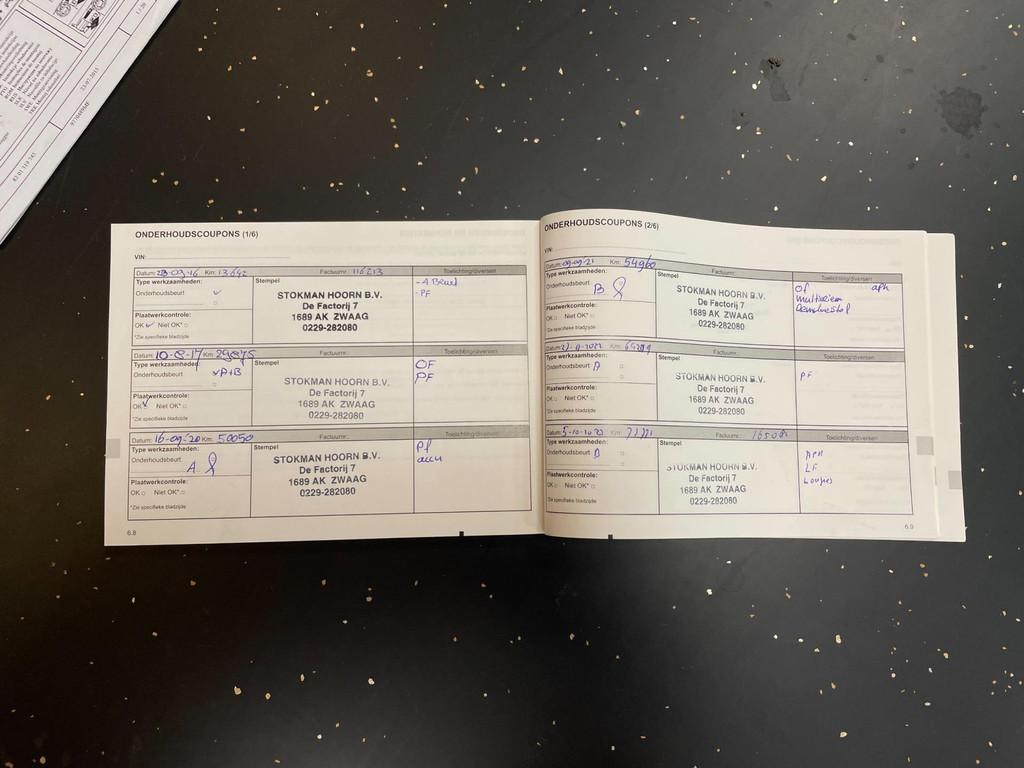 23-07-2015
ONDERHOUDSCOUPONS (1/6)
VIN:
Datum: 28-09-16 Km: 13642 Factuurnr.: 116213 Toelichting/diversen
Type werkzaamheden: Stempel
Onderhoudsbeurt ✓ - A Beurt
- PF
STOKMAN HOORN B.V.
De Factorij 7
1689 AK ZWAAG
0229-282080
Plaatwerkcontrole:
OK ✓ Niet OK*
*Zie specifieke bladzijde
Datum: Km: Factuurnr.: Toelichting/diversen
Type werkzaamheden: Stempel OF
Onderhoudsbeurt ✓ A+B PF
STOKMAN HOORN B.V.
De Factorij 7
1689 AK ZWAAG
0229-282080
Plaatwerkcontrole:
OK ✓ Niet OK*
*Zie specifieke bladzijde
Datum: 16-09-20 Km: 50050 Factuurnr.: Toelichting/diversen
Type werkzaamheden: Stempel Pf
Onderhoudsbeurt A accu
STOKMAN HOORN B.V.
De Factorij 7
1689 AK ZWAAG
0229-282080
Plaatwerkcontrole:
OK Niet OK*
*Zie specifieke bladzijde
6.8
ONDERHOUDSCOUPONS (2/6)
VIN:
Datum: 09-09-21 Km: 54960 Factuurnr.: Toelichting/diversen
Type werkzaamheden: Stempel OF aph
Onderhoudsbeurt B multiriem
STOKMAN HOORN B.V.
De Factorij 7
1689 AK ZWAAG
0229-282080
Plaatwerkcontrole:
OK Niet OK*
*Zie specifieke bladzijde
Datum: Km: Factuurnr.: Toelichting/diversen
Type werkzaamheden: Stempel PF
Onderhoudsbeurt A
STOKMAN HOORN B.V.
De Factorij 7
1689 AK ZWAAG
0229-282080
Plaatwerkcontrole:
OK Niet OK*
*Zie specifieke bladzijde
Datum: Km: Factuurnr.: Toelichting/diversen
Type werkzaamheden: Stempel APH
Onderhoudsbeurt LF
STOKMAN HOORN B.V.
De Factorij 7
1689 AK ZWAAG
0229-282080
Plaatwerkcontrole:
OK Niet OK*
*Zie specifieke bladzijde
6.9